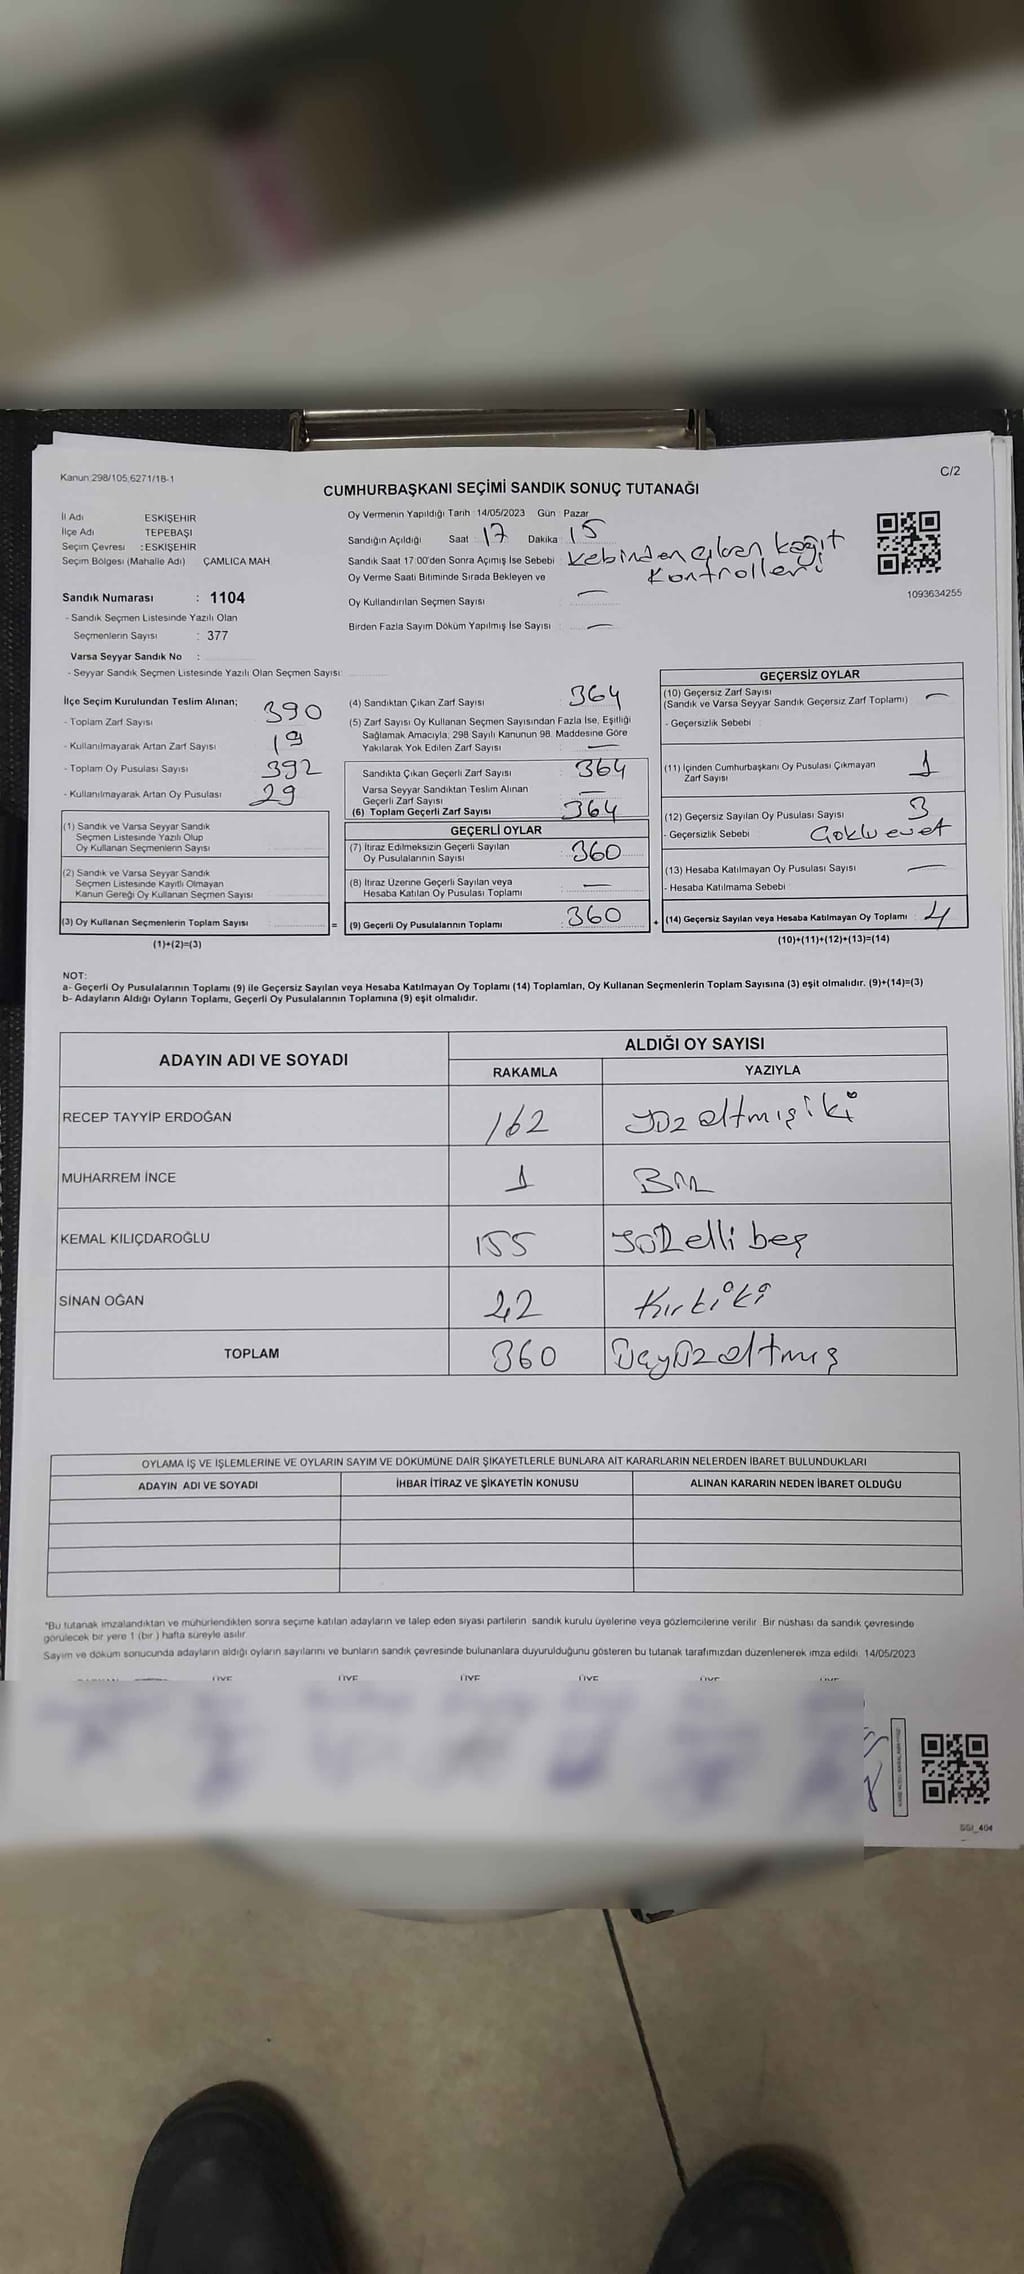 Kanun:298/105,6271/18-1
C/2
CUMHURBAŞKANI SEÇİMİ SANDIK SONUÇ TUTANAĞI
İl Adı ESKİŞEHİR
İlçe Adı TEPEBAŞI
Seçim Çevresi :ESKİŞEHİR
Seçim Bölgesi (Mahalle Adı) ÇAMLICA MAH
Sandık Numarası : 1104
- Sandık Seçmen Listesinde Yazılı Olan
Seçmenlerin Sayısı : 377
Varsa Seyyar Sandık No :
- Seyyar Sandık Seçmen Listesinde Yazılı Olan Seçmen Sayısı:
Oy Vermenin Yapıldığı Tarih : 14/05/2023 Gün : Pazar
Sandığın Açıldığı Saat : 17 Dakika : 15
Sandık Saat 17:00'den Sonra Açımış İse Sebebi : kebinden çıkan kağıt
Oy Verme Saati Bitiminde Sırada Bekleyen ve kontrolleri
Oy Kullandırılan Seçmen Sayısı : —
Birden Fazla Sayım Döküm Yapılmış İse Sayısı : —
1093634255
İlçe Seçim Kurulundan Teslim Alınan;
- Toplam Zarf Sayısı 390
- Kullanılmayarak Artan Zarf Sayısı 19
- Toplam Oy Pusulası Sayısı 392
- Kullanılmayarak Artan Oy Pusulası 29
(1) Sandık ve Varsa Seyyar Sandık
Seçmen Listesinde Yazılı Olup
Oy Kullanan Seçmenlerin Sayısı
(2) Sandık ve Varsa Seyyar Sandık
Seçmen Listesinde Kayıtlı Olmayan
Kanun Gereği Oy Kullanan Seçmen Sayısı
(3) Oy Kullanan Seçmenlerin Toplam Sayısı =
(1)+(2)=(3)
(4) Sandıktan Çıkan Zarf Sayısı : 364
(5) Zarf Sayısı Oy Kullanan Seçmen Sayısından Fazla İse, Eşitliği
Sağlamak Amacıyla; 298 Sayılı Kanunun 98. Maddesine Göre
Yakılarak Yok Edilen Zarf Sayısı : —
Sandıkta Çıkan Geçerli Zarf Sayısı : 364
Varsa Seyyar Sandıktan Teslim Alınan
Geçerli Zarf Sayısı —
(6) Toplam Geçerli Zarf Sayısı : 364
GEÇERLİ OYLAR
(7) İtiraz Edilmeksizin Geçerli Sayılan
Oy Pusulalarının Sayısı : 360
(8) İtiraz Üzerine Geçerli Sayılan veya
Hesaba Katılan Oy Pusulası Toplamı : —
(9) Geçerli Oy Pusulalarının Toplamı : 360 +
GEÇERSİZ OYLAR
(10) Geçersiz Zarf Sayısı
(Sandık ve Varsa Seyyar Sandık Geçersiz Zarf Toplamı) —
- Geçersizlik Sebebi :
(11) İçinden Cumhurbaşkanı Oy Pusulası Çıkmayan
Zarf Sayısı 1
(12) Geçersiz Sayılan Oy Pusulası Sayısı 3
- Geçersizlik Sebebi : Çoklu evet
(13) Hesaba Katılmayan Oy Pusulası Sayısı : —
- Hesaba Katılmama Sebebi
(14) Geçersiz Sayılan veya Hesaba Katılmayan Oy Toplamı : 4
(10)+(11)+(12)+(13)=(14)
NOT:
a- Geçerli Oy Pusulalarının Toplamı (9) ile Geçersiz Sayılan veya Hesaba Katılmayan Oy Toplamı (14) Toplamları, Oy Kullanan Seçmenlerin Toplam Sayısına (3) eşit olmalıdır. (9)+(14)=(3)
b- Adayların Aldığı Oyların Toplamı, Geçerli Oy Pusulalarının Toplamına (9) eşit olmalıdır.
ADAYIN ADI VE SOYADI ALDIĞI OY SAYISI
RAKAMLA YAZIYLA
RECEP TAYYİP ERDOĞAN 162 yüz altmış iki
MUHARREM İNCE 1 Bir
KEMAL KILIÇDAROĞLU 155 yüz elli beş
SİNAN OĞAN 42 Kırk iki
TOPLAM 360 Üçyüz altmış
OYLAMA İŞ VE İŞLEMLERİNE VE OYLARIN SAYIM VE DÖKÜMÜNE DAİR ŞİKAYETLERLE BUNLARA AİT KARARLARIN NELERDEN İBARET BULUNDUKLARI
ADAYIN ADI VE SOYADI İHBAR İTİRAZ VE ŞİKAYETİN KONUSU ALINAN KARARIN NEDEN İBARET OLDUĞU
*Bu tutanak imzalandıktan ve mühürlendikten sonra seçime katılan adayların ve talep eden siyasi partilerin sandık kurulu üyelerine veya gözlemcilerine verilir. Bir nüshası da sandık çevresinde
görülecek bir yere 1 (bir) hafta süreyle asılır.
Sayım ve döküm sonucunda adayların aldığı oyların sayılarını ve bunların sandık çevresinde bulunanlara duyurulduğunu gösteren bu tutanak tarafımızdan düzenlenerek imza edildi. 14/05/2023
ÜYE ÜYE ÜYE ÜYE ÜYE ÜYE
SSI_404